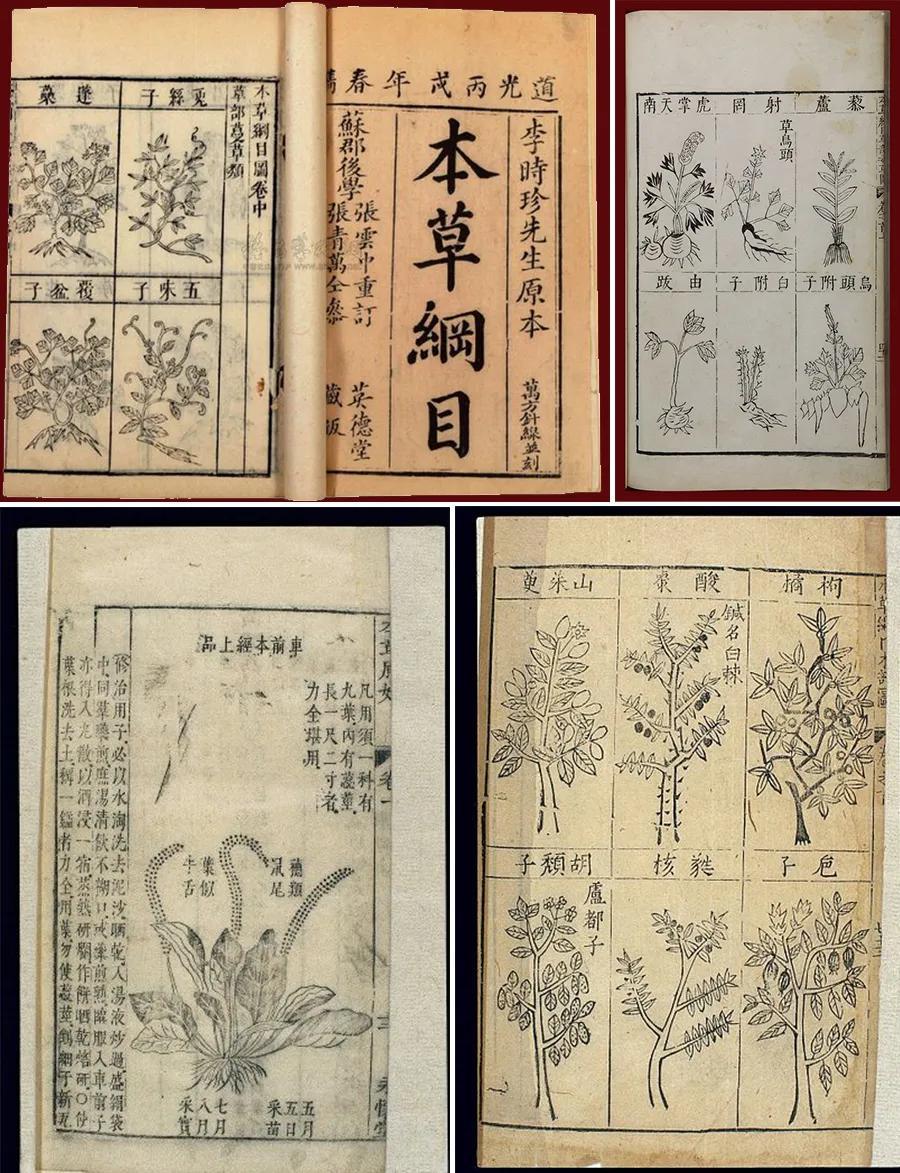 道光丙戌年春鐫
李時珍先生原本
萬方針線並刻
本草綱目
蘇郡後學
張雲中重訂
張青萬仝參
英德堂
藏板
本草綱目圖卷中
草部蔓草類
菟絲子
蓬蘽
五味子
覆盆子
藜蘆
射罔
草烏頭
虎掌天南
烏頭附子
白附子
由跋
車前本經上品
凡用須一科有
九葉內有蕋莖
長一尺二寸者
力全堪用
穗類
鼠尾
葉似
牛舌
五月
五日
采苗
七月
八月
采實
卷一
修治用子必以水淘洗去泥沙晒乾入湯液炒過盛絹袋
葉根洗去土稱一鎰者力全用葉勿使蕋莖
枸橘
酸棗
鍼名白棘
山茱萸
巵子
蕤核
胡頹子
盧都子